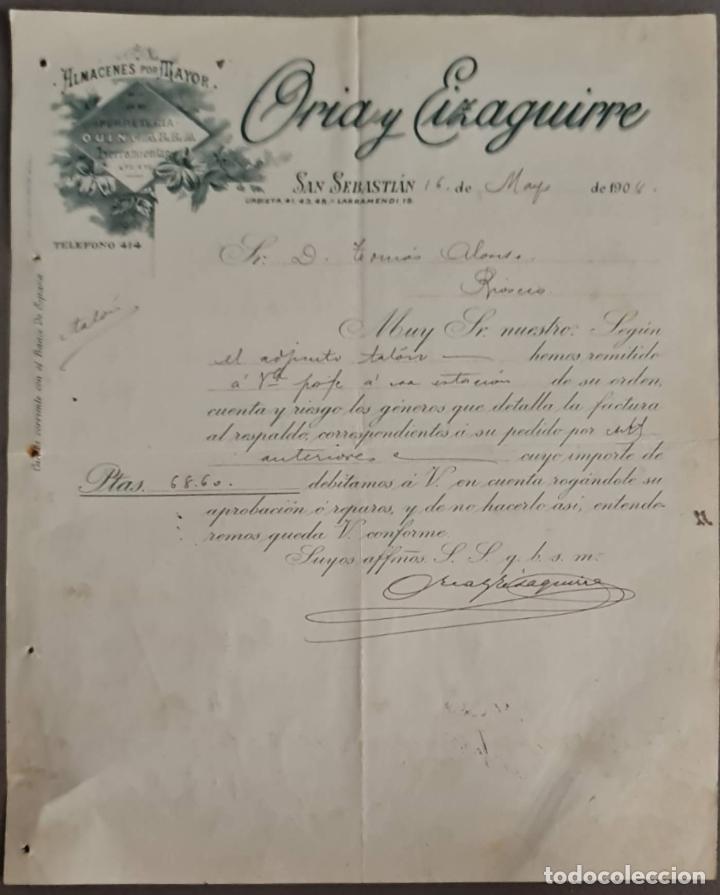 ALMACENES POR MAYOR.
DE
FERRETERIA
QUINCALLA
Herramientas
ETC. ETC.
TELEFONO 414
Oria y Eizaguirre
SAN SEBASTIÁN 16 de Mayo de 190
URBIETA, 41, 43, 45, Y LARRAMENDI 15.
Cuenta corriente con el Banco De España
talón
Sr. D. Tomás Alonso
Rioseco
Muy Sr. nuestro: Según
el adjunto talón hemos remitido
á Vd. por á estación de su orden,
cuenta y riesgo los géneros que detalla la factura
al respaldo, correspondientes á su pedido por
anteriores cuyo importe de
Ptas. 68.60. debitamos á V. en cuenta rogándole su
aprobación ó reparos, y de no hacerlo asi, entende-
remos queda V. conforme
Suyos affmos. S. S. q. b. s. m.
Oria y Eizaguirre
todocoleccion.net